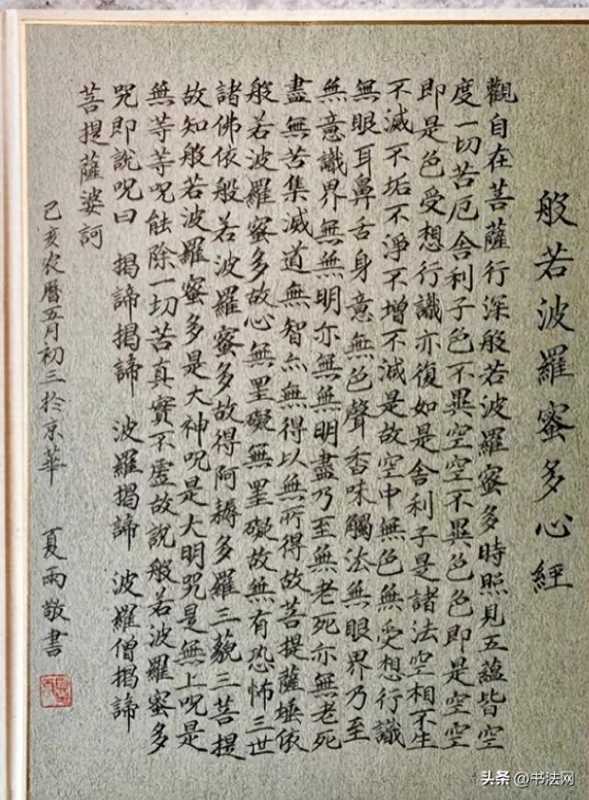 般若波羅蜜多心經
觀自在菩薩行深般若波羅蜜多時照見五蘊皆空
度一切苦厄舍利子色不異空空不異色色即是空空
即是色受想行識亦復如是舍利子是諸法空相不生
不滅不垢不淨不增不減是故空中無色無受想行識
無眼耳鼻舌身意無色聲香味觸法無眼界乃至
無意識界無無明亦無無明盡乃至無老死亦無老死
盡無苦集滅道無智亦無得以無所得故菩提薩埵依
般若波羅蜜多故心無罣礙無罣礙故無有恐怖三世
諸佛依般若波羅蜜多故得阿耨多羅三藐三菩提
故知般若波羅蜜多是大神呪是大明呪是無上呪是
無等等呪能除一切苦真實不虛故說般若波羅蜜多
呪即說呪曰 揭諦揭諦 波羅揭諦 波羅僧揭諦
菩提薩婆訶
己亥农曆五月初三於京華 夏雨敬書
头条 @书法网